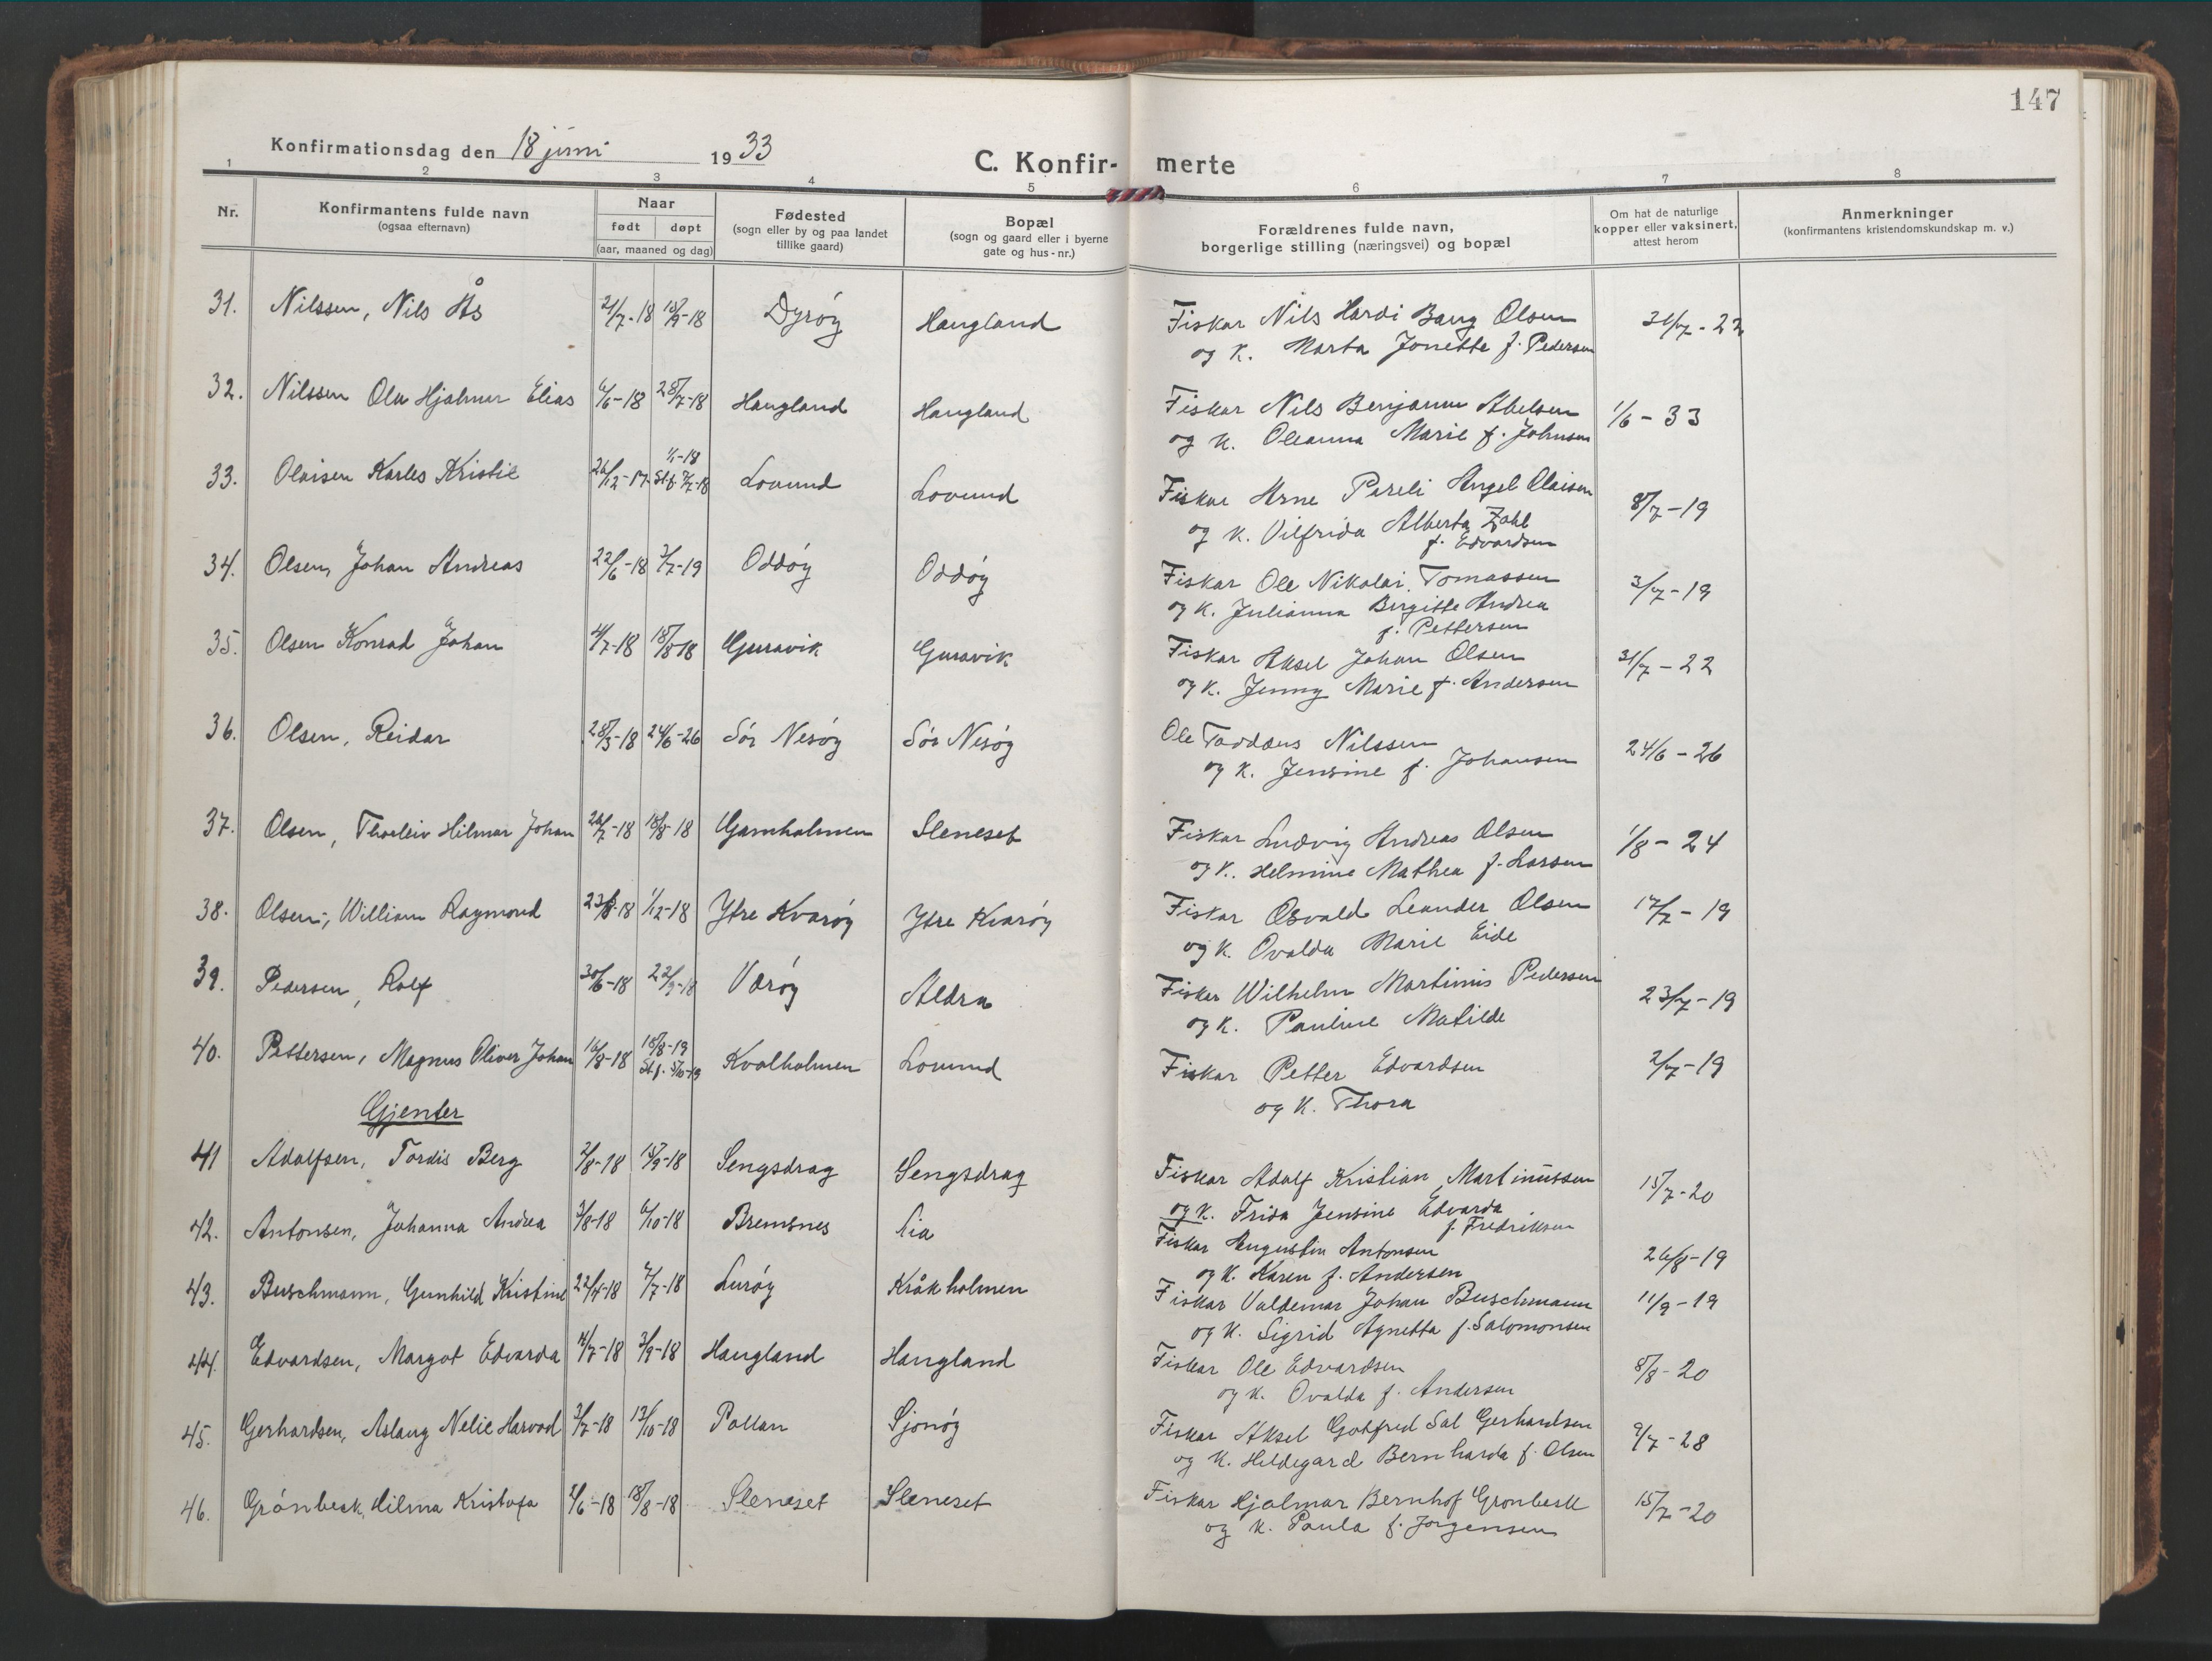 147
Konfirmationsdag den 18 juni 1933
C. Konfirmerte
1 2 3 4 5 6 7 8
Nr.
Konfirmantens fulde navn
(ogsaa efternavn)
Naar
født døpt
(aar, maaned og dag)
Fødested
(sogn eller by og paa landet
tillike gaard)
Bopæl
(sogn og gaard eller i byerne
gate og hus-nr.)
Forældrenes fulde navn,
borgerlige stilling (næringsvei) og bopæl
Om hat de naturlige
kopper eller vaksinert,
attest herom
Anmerkninger
(konfirmantens kristendomskundskap m. v.)
31. Nilssen, Nils Ås 21/7-18 15/9-18 Dyrøy Haugland Fiskar Nils Hardi Bang Olsen 31/7-22
og K. Marta Jonette f. Pedersen
32. Nilssen Ola Hjalmar Elias 6/6-18 28/7-18 Haugland Haugland Fiskar Nils Benjamin Abelsen 1/6-33
og K. Oleanna Marie f. Johnsen
33. Olaisen Karles Kristie 26/12-17 1/1-18 Lovund Lovund Fiskar Arne Pareli Angel Olaisen 8/7-19
St.f. 7/7-18
og K. Vilfrida Alberta Zahl
f. Edvardsen
34. Olsen, Johan Andreas 22/6-18 3/7-19 Oddøy Oddøy Fiskar Ole Nikolai Tomassen 3/7-19
og K. Julianna Birgitte Andrea
f. Pettersen
35. Olsen Konrad Johan 4/7-18 18/8-18 Guravik Guravik Fiskar Aksel Johan Olsen 31/7-22
og K. Jenny Marie f. Andersen
36. Olsen, Reidar 28/3-18 24/6-26 Sør Nesøy Sør Nesøy Ole Taddæus Nilssen 24/6-26
og K. Jensine f. Johansen
37. Olsen, Thorleiv Hilmar Johan 26/7-18 18/8-18 Gamholmen Sleneset Fiskar Ludvig Andreas Olsen 1/8-24
og K. Helmine Mathea f. Larsen
38. Olsen, William Raymond 23/8-18 1/12-18 Ytre Kvarøy Ytre Kvarøy Fiskar Osvald Leander Olsen 17/7-19
og K. Ovalda Marie Eide
39. Pedersen, Rolf 30/6-18 22/9-18 Værøy Aldra Fiskar Wilhelm Martinus Pedersen 23/7-19
og K. Pauline Matilde
40. Pettersen, Magnus Oliver Johan 16/8-18 18/8-19 Kvalholmen Lovund Fiskar Petter Edvardsen 2/7-19
St.f. 5/10-19
og K. Thora
Gjenter
41 Adolfsen, Tordis Berg 2/8-18 15/9-18 Sengsdrag Sengsdrag Fiskar Adolf Kristian Martinussen 15/7-20
og K. Frida Jensine Edvarda
f. Fredriksen
42. Antonsen, Johanna Andrea 3/8-18 6/10-18 Bremsnes Lia Fiskar Augustin Antonsen 26/8-19
og K. Karen f. Andersen
43. Buschmann, Gunhild Kristine 22/4-18 7/7-18 Lurøy Kråkholmen Fiskar Valdemar Johan Buschmann 11/9-19
og K. Sigrid Agnetta f. Salomonsen
44. Edvardsen, Margot Edvarda 4/7-18 3/9-18 Haugland Haugland Fiskar Ole Edvardsen 8/8-20
og K. Ovalda f. Andersen
45. Gerhardsen, Aslaug Nelie Harvod 3/7-18 13/10-18 Pollan Sjonøy Fiskar Aksel Gotfred Sal Gerhardsen 9/7-28
og K. Hildegard Bernharda f. Olsen
46. Grønbeck, Hilma Kristofa 2/6-18 18/8-18 Sleneset Sleneset Fiskar Hjalmar Bernhof Grønbeck 15/7-20
og K. Paula f. Jørgensen